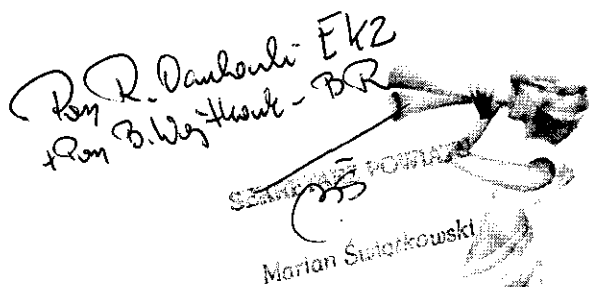 Pan R. Dankowski EKZ
+ Pan B. Wojtkowiak - BR
SEKRETARZ POWIATU
MŚ
Marian Świątkowski